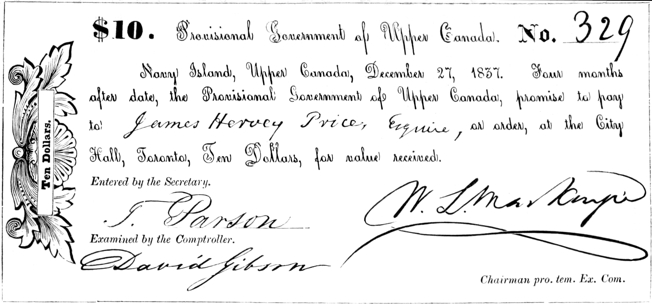 $10. Provisional Government of Upper Canada. No. 329
Navy Island, Upper Canada, December 27, 1837. Four months
after date, the Provisional Government of Upper Canada, promise to pay
to James Hervey Price, Esquire, or order, at the City
Hall, Toronto, Ten Dollars, for value received.
Ten Dollars.
Entered by the Secretary.
T. Parson
Examined by the Comptroller.
David Gibson
W. L. Mackenzie
Chairman pro. tem. Ex. Com.